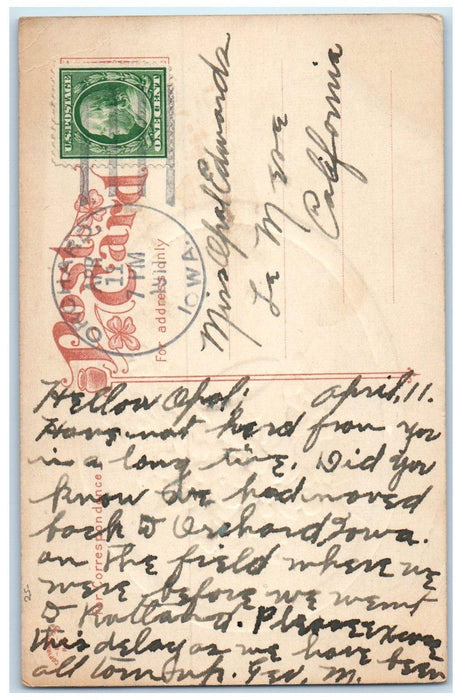 U.S. POSTAGE
ONE CENT
Post Card
ORCHARD
APR
11
7 PM
IOWA.
For address only
Miss Opal Edwards
La Mesa
California
For Correspondence
Hellow Opal: April, 11.
Have not herd from you
in a long time. Did you
know we had moved
back to Orchard Iowa.
on the field where we
were before we went
to Rutland. Please excuse
this delay as we have been
all torn up. Geo. M.
25-